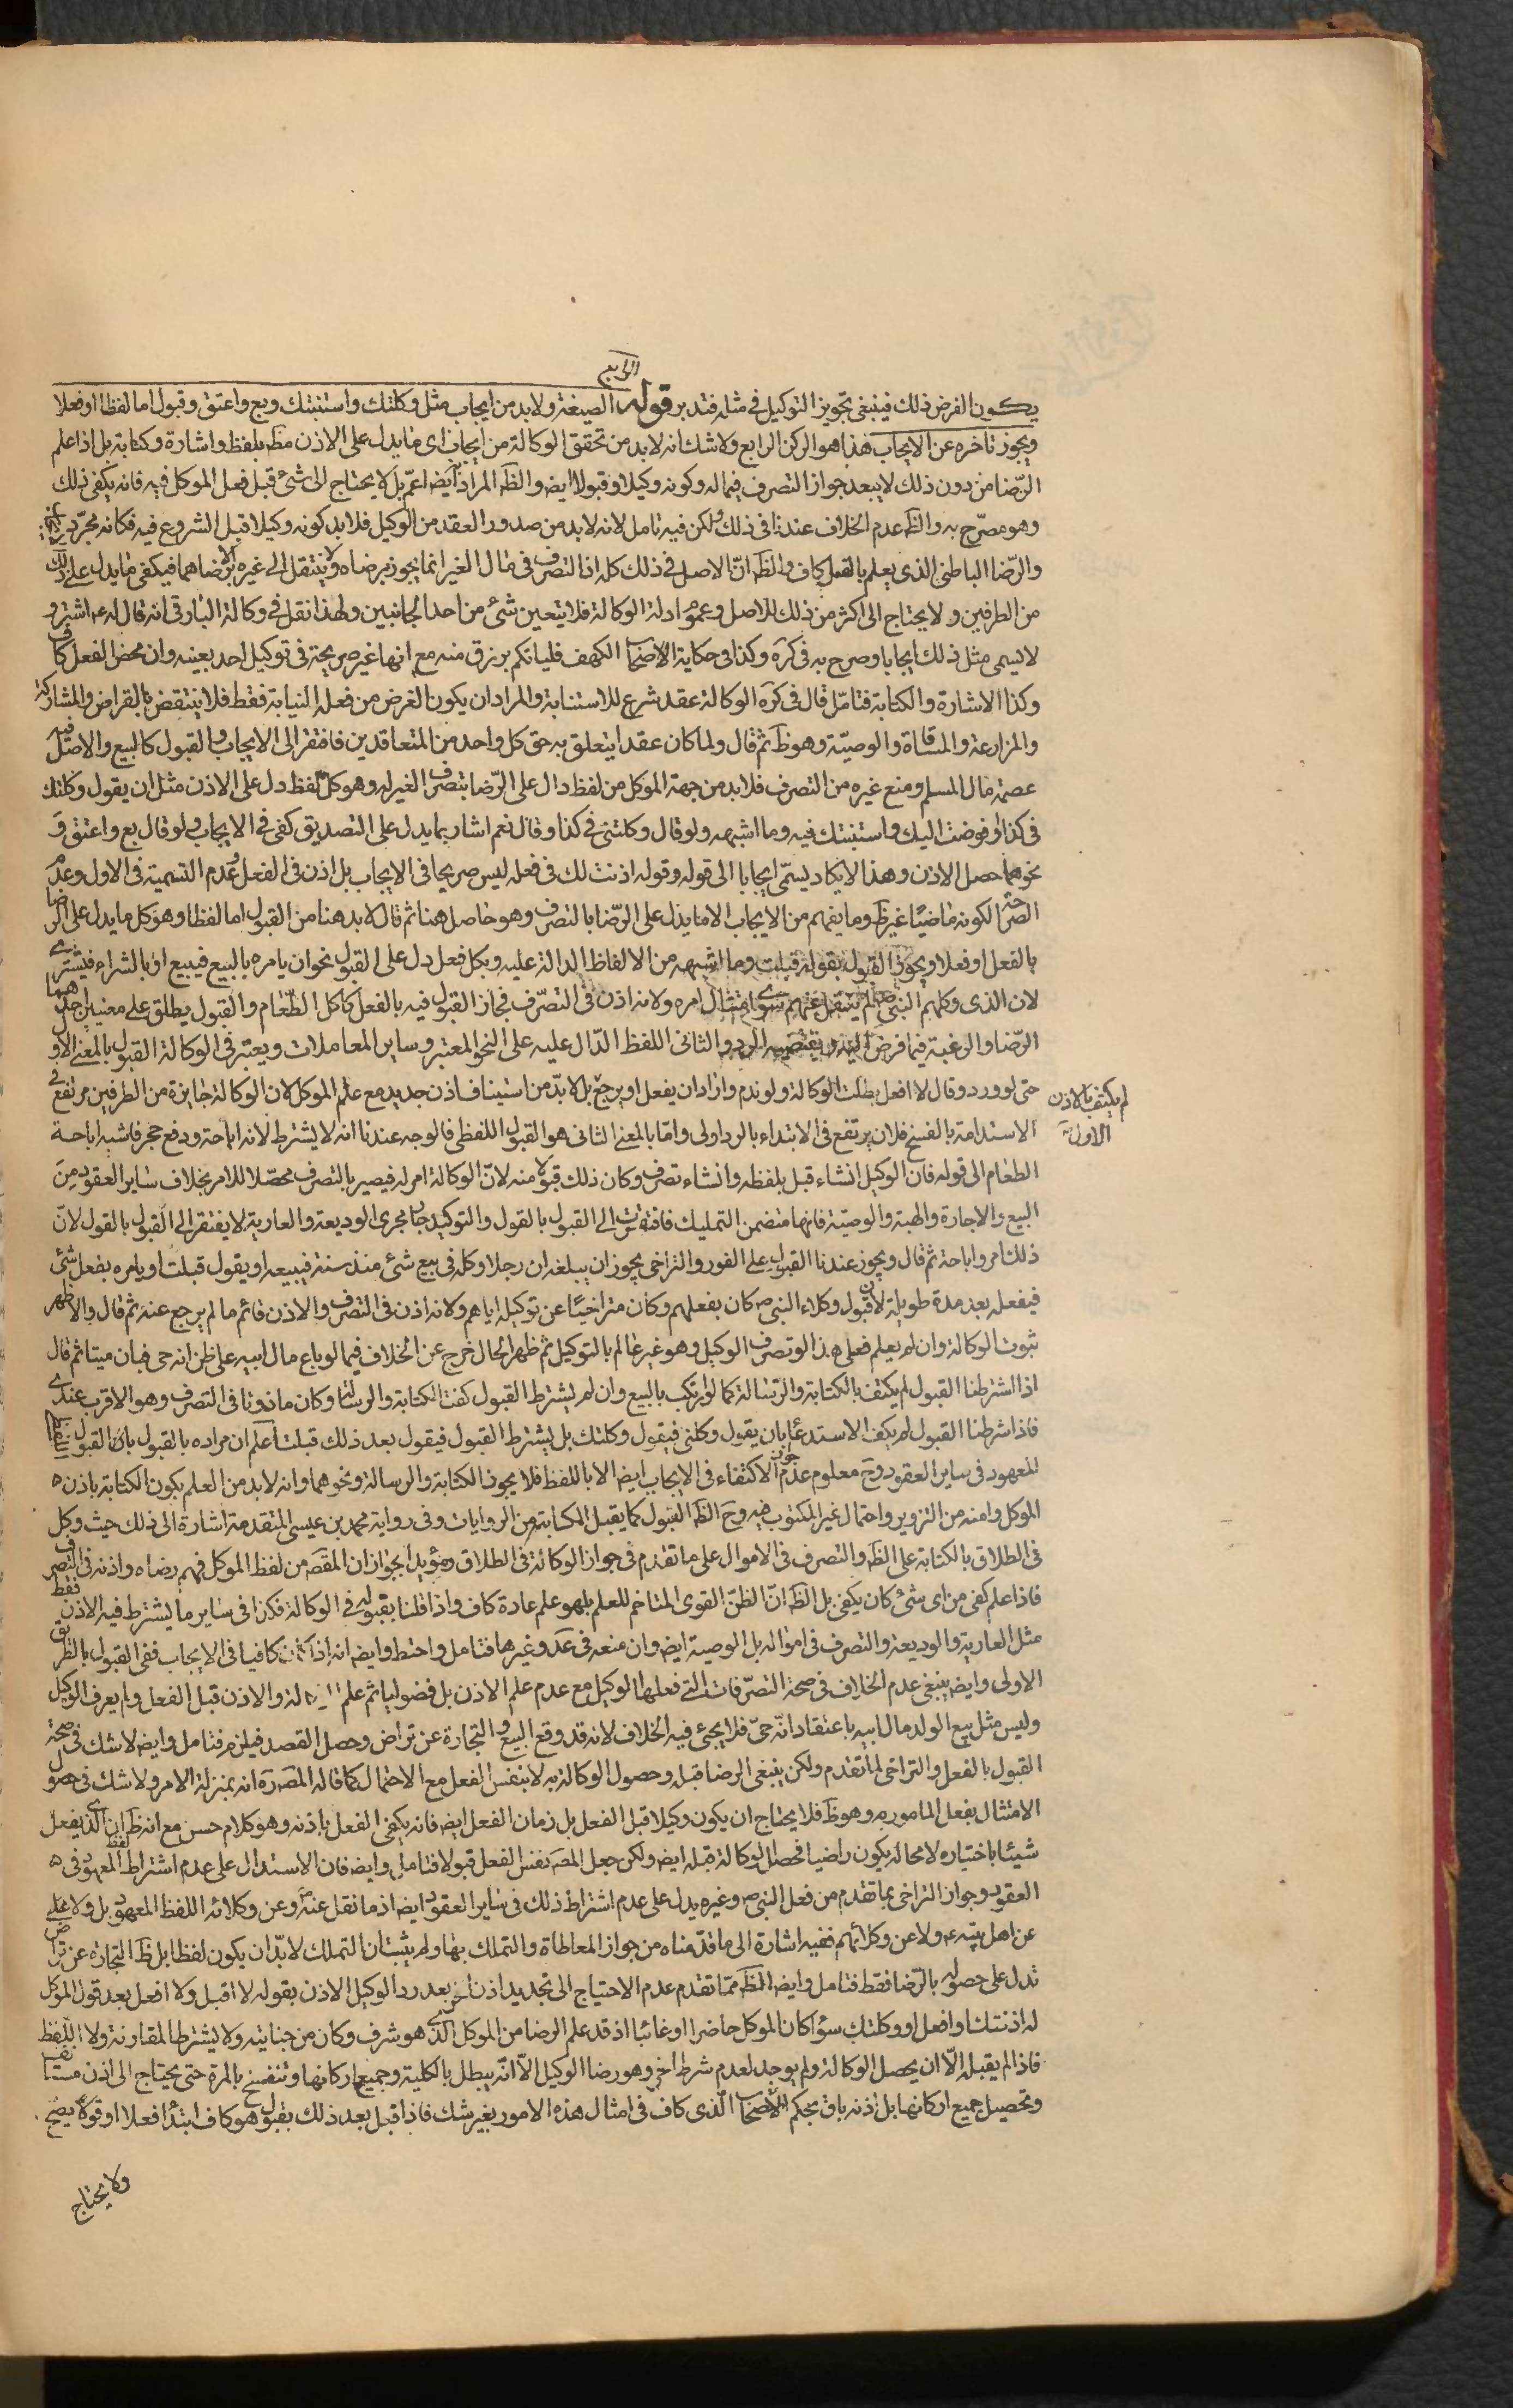 الرابع
يكون الفرض ذلك فينبغى تجويز التوكيل فى مثله فتدبر قوله الصيغة ولا بد من ايجاب مثل وكلتك واستنبتك وبع واعتق وقبول اما لفظا او فعلا
ويجوز تاخره عن الايجاب هذا هو الركن الرابع ولا شك انه لابد من تحقق الوكالة من ايجاب اى ما يدل على الاذن مط بلفظ واشارة وكتابة بل اذا علم
الرّضا من دون ذلك لا يبعد جواز التصرف فيما له وكونه وكيلا وقبولا ايض والظ المراد ايض اعم بل لا يحتاج الى شئ قبل فعل الموكل فيه فانه يكفى ذلك
وهو مصرّح به والظ عدم الخلاف عندنا فى ذلك ولكن فيه تامل لانه لابد من صدور العقد من الوكيل فلابد كونه وكيلا قبل الشروع فيه فكانه مجرّد
والرّضا الباطنى الذى يعلم بالفعل كاف والظ انّ الاصل فى ذلك كله ان التصرف فى مال الغير انما يجوز برضاه ولا ينتقل الى غيره الا برضاهما فيكفى ما يدل على ذلك
من الطرفين ولا يحتاج الى اكثر من ذلك للاصل وعموم ادلة الوكالة فلا يتعين شئ من احد الجانبين ولهذا نقل فى وكالة البارقى انه قال له ع اشتر و
لا يسمى مثل ذلك ايجابا وصرح به فى كره وكذا فى حكاية الاصحاب الكهف فلياتكم برزق منه مع انها غير صريحة فى توكيل احد بعينه وان محض الفعل كاف
وكذا الاشارة والكتابة فتامّل قال فى كره الوكالة عقد شرع للاستنابة والمراد ان يكون الغرض من فعله النيابة فقط فلا ينتقض بالقراض والمشاركة
والمزارعة والمساقاة والوصيّة وهو ظ ثم قال ولما كان عقدا يتعلق به حق كل واحد من المتعاقدين فافتقر الى الايجاب والقبول كالبيع والاصل فيه
عصمة مال المسلم ومنع غيره من التصرف فلابد من جهة الموكل من لفظ دال على الرّضا بتصرف الغير له وهو كل لفظ دل على الاذن مثل ان يقول وكلتك
فى كذا او فوضت اليك واستنبتك فيه وما اشبهه ولو قال وكلتنى فى كذا وقال نعم اشار بما يدل على التصديق كفى فى الايجاب ولو قال بع واعتق و
نحوهما حصل الاذن وهذا لا يكاد يسمّى ايجابا الى قوله وقوله اذنت لك فى فعله ليس صريحا فى الايجاب بل اذن فى الفعل وعدم التسمية فى الاول وعدم
الصراحة لكونه ماضيّا غير ظ وما يفهم من الايجاب الا ما يدل على الرّضا بالتصرف وهو حاصل هنا ثم قال لابد هنا من القبول اما لفظا وهو كل ما يدل على الرضا
بالفعل او فعلا ويجوز القبول بقوله قبلت وما اشبهه من الالفاظ الدالة عليه وبكل فعل دل على القبول نحو ان يامره بالبيع فيبيع او بالشراء فيشترى
لان الذى وكلهم النبى ص لم ينقل عنهم سوى امتثال امره ولانه اذن فى التصرّف فجاز القبول فيه بالفعل كاكل الطّعام والقبول يطلق على معنيين احدهما
الرّضا والرغبة فيما فرض اليه ونقيضه الرد والثانى اللفظ الدّال عليه على النحو المعتبر وساير المعاملات ويعتبر فى الوكالة القبول بالمعنى الاول
حتى لو ورد وقال لا افعل بطلت الوكالة ولو ندم واراد ان يفعل او يرجع بل لابدّ من استيناف اذن جديد مع علم الموكل لان الوكالة جايزة من الطرفين مرتفع فى
لم يكتف بالاذن
الاول
الاستدامة بالفسخ فلان يرتفع فى الابتداء بالرد اولى وامّا بالمعنى الثانى هو القبول اللفظى فالوجه عندنا انه لا يشترط لانه اباحة ودفع حجر فاشبه اباحة
الطعام الى قوله فان الوكيل انشاء قبل بلفظه وانشاء تصرف وكان ذلك قبولا منه لانّ الوكالة امر له فيصير بالتصرف محصّلا للامر بخلاف ساير العقود من
البيع والاجارة والهبة والوصيّة فانها متضمن التمليك فافتقرت الى القبول بالقول والتوكيد جار مجرى الوديعة والعارية لا يفتقر الى القبول بالقول لانّ
ذلك امر واباحة ثم قال ويجوز عندنا القبول على الفور والتراخى يجوز ان يبلغه ان رجلا وكله فى بيع شئ منذ سنة فيبيعه او يقول قبلت او يامره بفعل شئ
فيفعله بعد مدة طويلة لان قبول وكلاء النبى ص كان بفعلهم وكان متراخيّا عن توكيله اياهم ولانه اذن فى التصرف والاذن قائم ما لم يرجع عنه ثم قال والاظهر
ثبوت الوكالة وان لم يعلم فعلى هذا لو تصرف الوكيل وهو غير عالم بالتوكيل ثم ظهر الحال خرج عن الخلاف فيما لو باع مال ابيه على ظن انه حى فبان ميتا ثم قال
اذا اشترطنا القبول لم يكتف بالكتابة والرّسالة كما لو كتب بالبيع وان لم يشترط القبول كفت الكتابة والرسالة وكان ماذونا فى التصرف وهو الاقرب عندى
فاذا شرطنا القبول لم يكف الاستدعا بان يقول وكلنى فيقول وكلتك بل يشترط القبول فيقول بعد ذلك قبلت اعلم ان مراده بالقبول بان القبول
المعهود فى ساير العقود وح معلوم عدم جواز الاكتفاء فى الايجاب ايض الا باللفظ فلا يجوز الكتابة والرسالة ونحوهما وانه لابد من العلم بكون الكتابة باذن
الموكل وامنه من التزوير واحتمال غير المكتوب فيه وح الظ القبول كما يقبل الكتابة من الروايات وفى رواية محمد بن عيسى المتقدمة اشارة الى ذلك حيث وكل
فى الطلاق بالكتابة على الظ والتصرف فى الاموال على ما تقدم فى جواز الوكالة فى الطلاق ومؤيد الجواز ان المقص من لفظ الموكل فهم رضاه واذنه فى التصرف
فاذا علم كفى من اى شئ كان يكفى بل الظ انّ الظنّ القوى المتاخم للعلم بل هو علم عادة كاف واذا قلنا بقبوله فى الوكالة فكذا فى ساير ما يشترط فيه الاذن فقط
مثل العارية والوديعة والتصرف فى امواله بل الوصية ايض وان منعه فى عد وغيرها فتامل واحتط وايض انه اذا كان كافيا فى الايجاب ففى القبول بالطريق
الاولى وايض ينبغى عدم الخلاف فى صحة التصرّفات التى فعلها الوكيل مع عدم علم الاذن بل فضوليا ثم علم الوكالة والاذن قبل الفعل ولم يعرف الوكيل
وليس مثل بيع الولد مال ابيه باعتقاد انّه حىّ فلا يجئ فيه الخلاف لانه قد وقع البيع والتجارة عن تراض وحصل القصد فيلزم فتامل وايض لا شك فى صحة
القبول بالفعل والتراخى لما تقدم ولكن ينبغى الرضا قبله وحصول الوكالة به لا بنفس الفعل مع الاحتمال كما قاله المص ره انه بمنزلة الامر ولا شك فى حصول
الامتثال بفعل المامور به وهو ظ فلا يحتاج ان يكون وكيلا قبل الفعل بل زمان الفعل ايض فانه يكفى الفعل باذنه وهو كلام حسن مع انه ظ ان الذى يفعل
شيئا باختياره لا محالة يكون راضيا فحصل الوكالة قبله ايض ولكن جعل المص نفس الفعل قبولا فتامل وايض فان الاستدلال على عدم اشتراط اللفظ المعهود فى
العقود وجواز التراخى بما تقدم من فعل النبى ص وغيره يدل على عدم اشتراط ذلك فى ساير العقود ايض اذ ما نقل عنه ص وعن وكلائه اللفظ المعهود بل ولا على
عن اهل بيته ع ولا عن وكلائهم ففيه اشارة الى ما قدّمناه من جواز المعاطاة والتملك بها ولم يثبت ان التملك لابدّ ان يكون لفظا بل ظ التجارة عن تراض
تدل على حصوله بالرّضا فقط فتامل وايض الظ ممّا تقدم عدم الاحتياج الى تجديد اذن اخرى بعد رد الوكيل الاذن بقوله لا اقبل ولا افعل بعد قول الموكل
له اذنتك او افعل او وكلتك سوٰا كان الموكل حاضرا او غائبا اذ قد علم الرضا من الموكل الذى هو شرف وكان من جنايته ولا يشترط المقارنة ولا اللّفظ
فاذا لم يقبله الّا ان يحصل الوكالة ولم يوجد لعدم شرط اخر وهو رضا الوكيل الّا انّه يبطل بالكلية وجميع اركانها وتنفسخ بالمرة حتى يحتاج الى اذن مستانف
وتحصيل جميع اركانها بل اذنه باق بحكم الاستصحاب الّذى كاف فى امثال هذه الامور بغير شك فاذا قبل بعد ذلك بقبول هو كاف ابتدأ فعلا او قولا فيصح
ولا يحتاج